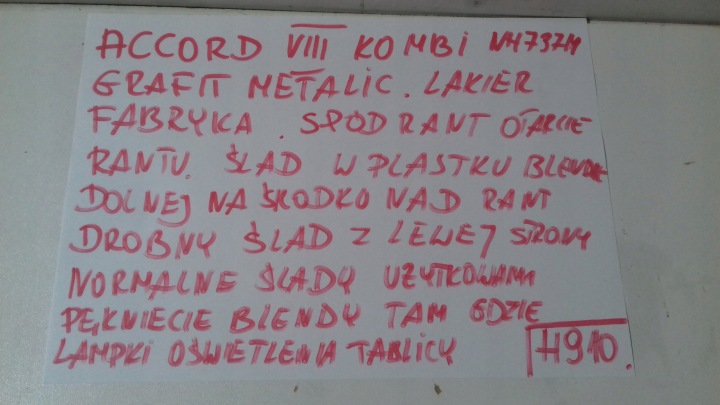 ACCORD VIII KOMBI NH737M
GRAFIT METALIC. LAKIER
FABRYKA. SPÓD RANT OTARCIE
RANTU. ŚLAD W PLASTKU BLENDIE
DOLNEJ NA ŚRODKO NAD RANT
DROBNY ŚLAD Z LEWEJ STRONY
NORMALNE ŚLADY UŻYTKOWANIA
PĘKNIECIE BLENDY TAM GDZIE
LAMPKI OŚWIETLENIA TABLICY
H910.